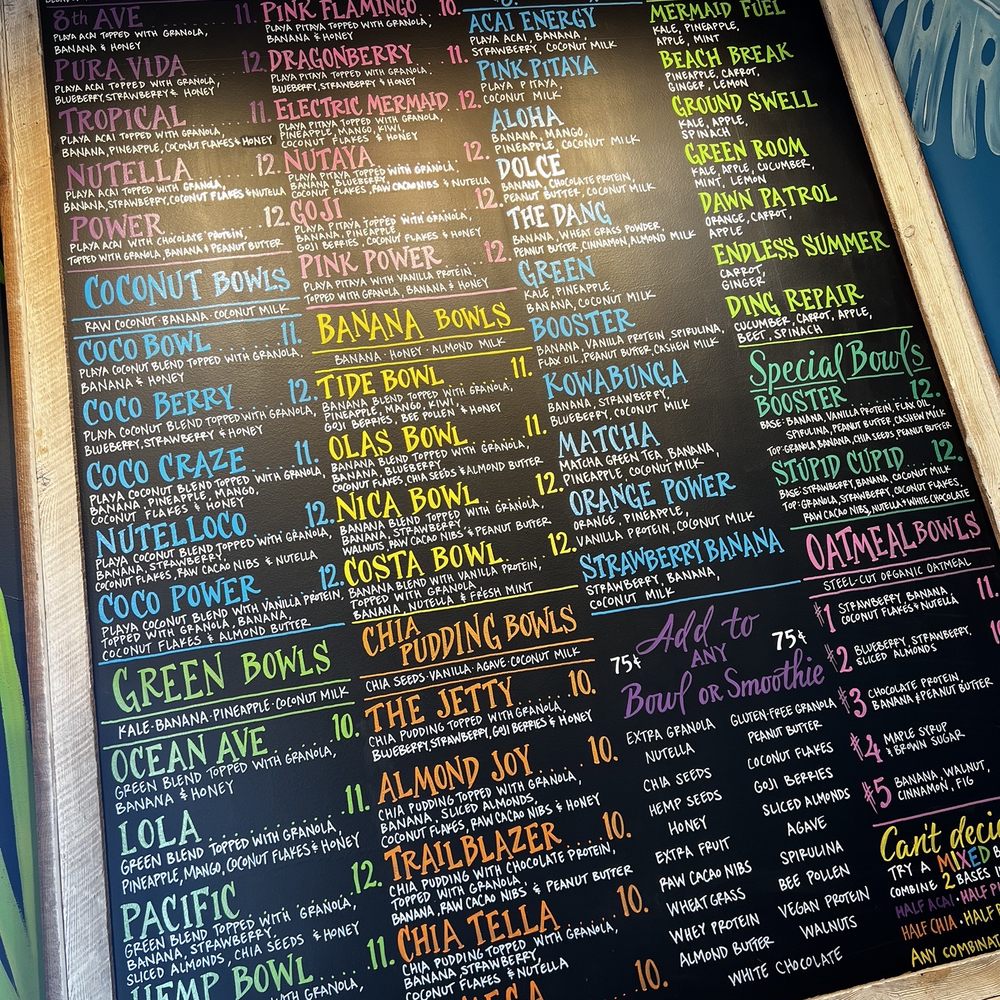 8th AVE
PLAYA ACAI TOPPED WITH GRANOLA,
BANANA & HONEY
PURA VIDA 12.
PLAYA ACAI TOPPED WITH GRANOLA,
BLUEBERRY, STRAWBERRY & HONEY
TROPICAL 11.
PLAYA ACAI TOPPED WITH GRANOLA,
BANANA, PINEAPPLE, COCONUT FLAKES & HONEY
NUTELLA 12.
PLAYA ACAI TOPPED WITH GRANOLA,
BANANA, STRAWBERRY, COCONUT FLAKES & NUTELLA
POWER 12.
PLAYA ACAI WITH CHOCOLATE PROTEIN,
TOPPED WITH GRANOLA, BANANA & PEANUT BUTTER
COCONUT BOWLS
RAW COCONUT · BANANA · COCONUT MILK
COCO BOWL 11.
PLAYA COCONUT BLEND TOPPED WITH GRANOLA,
BANANA & HONEY
COCO BERRY 12.
PLAYA COCONUT BLEND TOPPED WITH GRANOLA,
BLUEBERRY, STRAWBERRY & HONEY
COCO CRAZE 11.
PLAYA COCONUT BLEND TOPPED WITH GRANOLA
BANANA, PINEAPPLE, MANGO,
COCONUT FLAKES & HONEY
NUTELLOCO 12.
PLAYA COCONUT BLEND TOPPED WITH GRANOLA,
BANANA, STRAWBERRY,
COCONUT FLAKES, RAW CACAO NIBS & NUTELLA
COCO POWER 12.
PLAYA COCONUT BLEND WITH VANILLA PROTEIN
TOPPED WITH GRANOLA, BANANA,
COCONUT FLAKES & ALMOND BUTTER
GREEN BOWLS
KALE · BANANA · PINEAPPLE · COCONUT MILK
OCEAN AVE 10.
GREEN BLEND TOPPED WITH GRANOLA,
BANANA & HONEY
LOLA 11.
GREEN BLEND TOPPED WITH GRANOLA,
PINEAPPLE, MANGO, COCONUT FLAKES & HONEY
PACIFIC 12.
GREEN BLEND TOPPED WITH GRANOLA,
BANANA, STRAWBERRY,
SLICED ALMONDS, CHIA SEEDS & HONEY
HEMP BOWL 11.
WITH GRANOLA,
PINK FLAMINGO 10.
PLAYA PITAYA TOPPED WITH GRANOLA,
BANANA & HONEY
DRAGONBERRY 11.
PLAYA PITAYA TOPPED WITH GRANOLA,
BLUEBERRY, STRAWBERRY & HONEY
ELECTRIC MERMAID 12.
PLAYA PITAYA TOPPED WITH GRANOLA,
PINEAPPLE, MANGO, KIWI,
COCONUT FLAKES & HONEY
NUTAYA 12.
PLAYA PITAYA TOPPED WITH GRANOLA,
BANANA, BLUEBERRY,
COCONUT FLAKES, RAW CACAO NIBS & NUTELLA
GOJI 12.
PLAYA PITAYA TOPPED WITH GRANOLA,
BANANA, PINEAPPLE
GOJI BERRIES, COCONUT FLAKES & HONEY
PINK POWER 12.
PLAYA PITAYA WITH VANILLA PROTEIN,
TOPPED WITH GRANOLA, BANANA & HONEY
BANANA BOWLS
BANANA · HONEY · ALMOND MILK
TIDE BOWL 11.
BANANA BLEND TOPPED WITH GRANOLA,
PINEAPPLE, MANGO, KIWI,
GOJI BERRIES, BEE POLLEN & HONEY
OLAS BOWL 11.
BANANA BLEND TOPPED WITH GRANOLA,
BANANA, BLUEBERRY,
COCONUT FLAKES, CHIA SEEDS & ALMOND BUTTER
NICA BOWL 12.
BANANA BLEND TOPPED WITH GRANOLA,
BANANA, STRAWBERRY,
WALNUTS, RAW CACAO NIBS & PEANUT BUTTER
COSTA BOWL 12.
BANANA BLEND WITH VANILLA PROTEIN,
TOPPED WITH GRANOLA,
BANANA, NUTELLA & FRESH MINT
CHIA PUDDING BOWLS
CHIA SEEDS · VANILLA · AGAVE · COCONUT MILK
THE JETTY 10.
CHIA PUDDING TOPPED WITH GRANOLA,
BLUEBERRY, STRAWBERRY, GOJI BERRIES & HONEY
ALMOND JOY 10.
CHIA PUDDING TOPPED WITH GRANOLA,
BANANA, SLICED ALMONDS,
COCONUT FLAKES, RAW CACAO NIBS & HONEY
TRAILBLAZER 10.
CHIA PUDDING WITH CHOCOLATE PROTEIN,
TOPPED WITH GRANOLA,
BANANA, RAW CACAO NIBS & PEANUT BUTTER
CHIA TELLA 10.
CHIA PUDDING TOPPED WITH GRANOLA,
BANANA, STRAWBERRY,
COCONUT FLAKES & NUTELLA
10.
ACAI ENERGY
PLAYA ACAI, BANANA,
STRAWBERRY, COCONUT MILK
PINK PITAYA
PLAYA PITAYA,
COCONUT MILK
ALOHA
BANANA, MANGO,
PINEAPPLE, COCONUT MILK
DOLCE
BANANA, CHOCOLATE PROTEIN,
PEANUT BUTTER, COCONUT MILK
THE DANG
BANANA, WHEAT GRASS POWDER,
PEANUT BUTTER, CINNAMON, ALMOND MILK
GREEN
KALE, PINEAPPLE,
BANANA, COCONUT MILK
BOOSTER
BANANA, VANILLA PROTEIN, SPIRULINA,
FLAX OIL, PEANUT BUTTER, CASHEW MILK
KOWABUNGA
BANANA, STRAWBERRY,
BLUEBERRY, COCONUT MILK
MATCHA
MATCHA GREEN TEA, BANANA,
PINEAPPLE, COCONUT MILK
ORANGE POWER
ORANGE, PINEAPPLE,
VANILLA PROTEIN, COCONUT MILK
STRAWBERRY BANANA
STRAWBERRY, BANANA,
COCONUT MILK
MERMAID FUEL
KALE, PINEAPPLE,
APPLE, MINT
BEACH BREAK
PINEAPPLE, CARROT,
GINGER, LEMON
GROUND SWELL
KALE, APPLE,
SPINACH
GREEN ROOM
KALE, APPLE, CUCUMBER,
MINT, LEMON
DAWN PATROL
ORANGE, CARROT,
APPLE
ENDLESS SUMMER
CARROT,
GINGER
DING REPAIR
CUCUMBER, CARROT, APPLE,
BEET, SPINACH
Special Bowls
BOOSTER 12.
BASE: BANANA, VANILLA PROTEIN, FLAX OIL,
SPIRULINA, PEANUT BUTTER, CASHEW MILK
TOP: GRANOLA, BANANA, CHIA SEEDS, PEANUT BUTTER
STUPID CUPID 12.
BASE: STRAWBERRY, BANANA, COCONUT MILK
TOP: GRANOLA, STRAWBERRY, COCONUT FLAKES,
RAW CACAO NIBS, NUTELLA & WHITE CHOCOLATE
OATMEAL BOWLS
STEEL-CUT ORGANIC OATMEAL
#1 STRAWBERRY, BANANA, 11.
COCONUT FLAKES & NUTELLA
#2 BLUEBERRY, STRAWBERRY,
SLICED ALMONDS
#3 CHOCOLATE PROTEIN,
BANANA & PEANUT BUTTER
#4 MAPLE SYRUP
& BROWN SUGAR
#5 BANANA, WALNUT,
CINNAMON, FIG
75¢ Add to 75¢
ANY
Bowl or Smoothie
EXTRA GRANOLA
NUTELLA
CHIA SEEDS
HEMP SEEDS
HONEY
EXTRA FRUIT
RAW CACAO NIBS
WHEATGRASS
WHEY PROTEIN
ALMOND BUTTER
GLUTEN-FREE GRANOLA
PEANUT BUTTER
COCONUT FLAKES
GOJI BERRIES
SLICED ALMONDS
AGAVE
SPIRULINA
BEE POLLEN
VEGAN PROTEIN
WALNUTS
WHITE CHOCOLATE
Can't deci
TRY A MIXED B
COMBINE 2 BASES
HALF ACAI · HALF P
HALF CHIA · HALF
ANY COMBINA